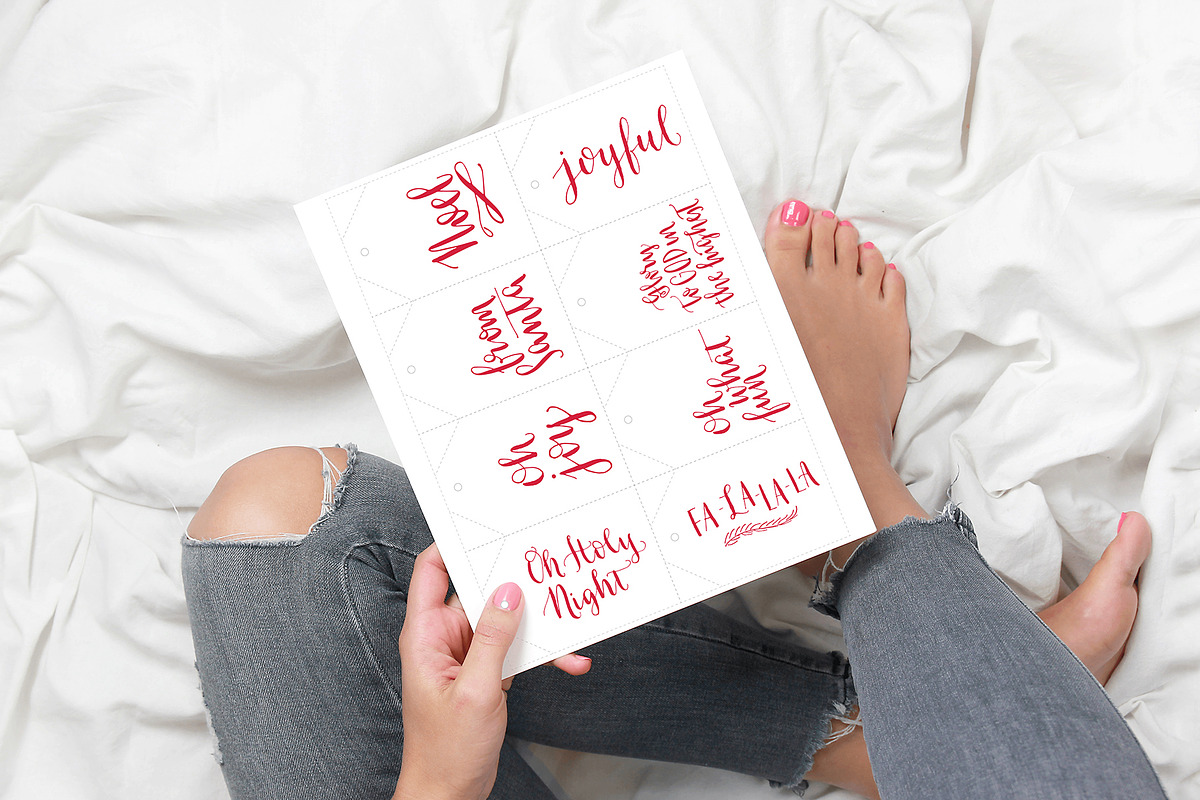 Noel
joyful
from
Santa
Glory
to GOD in
the highest
oh
joy
oh
what
fun
Oh Holy
Night
FA-LA-LA-LA